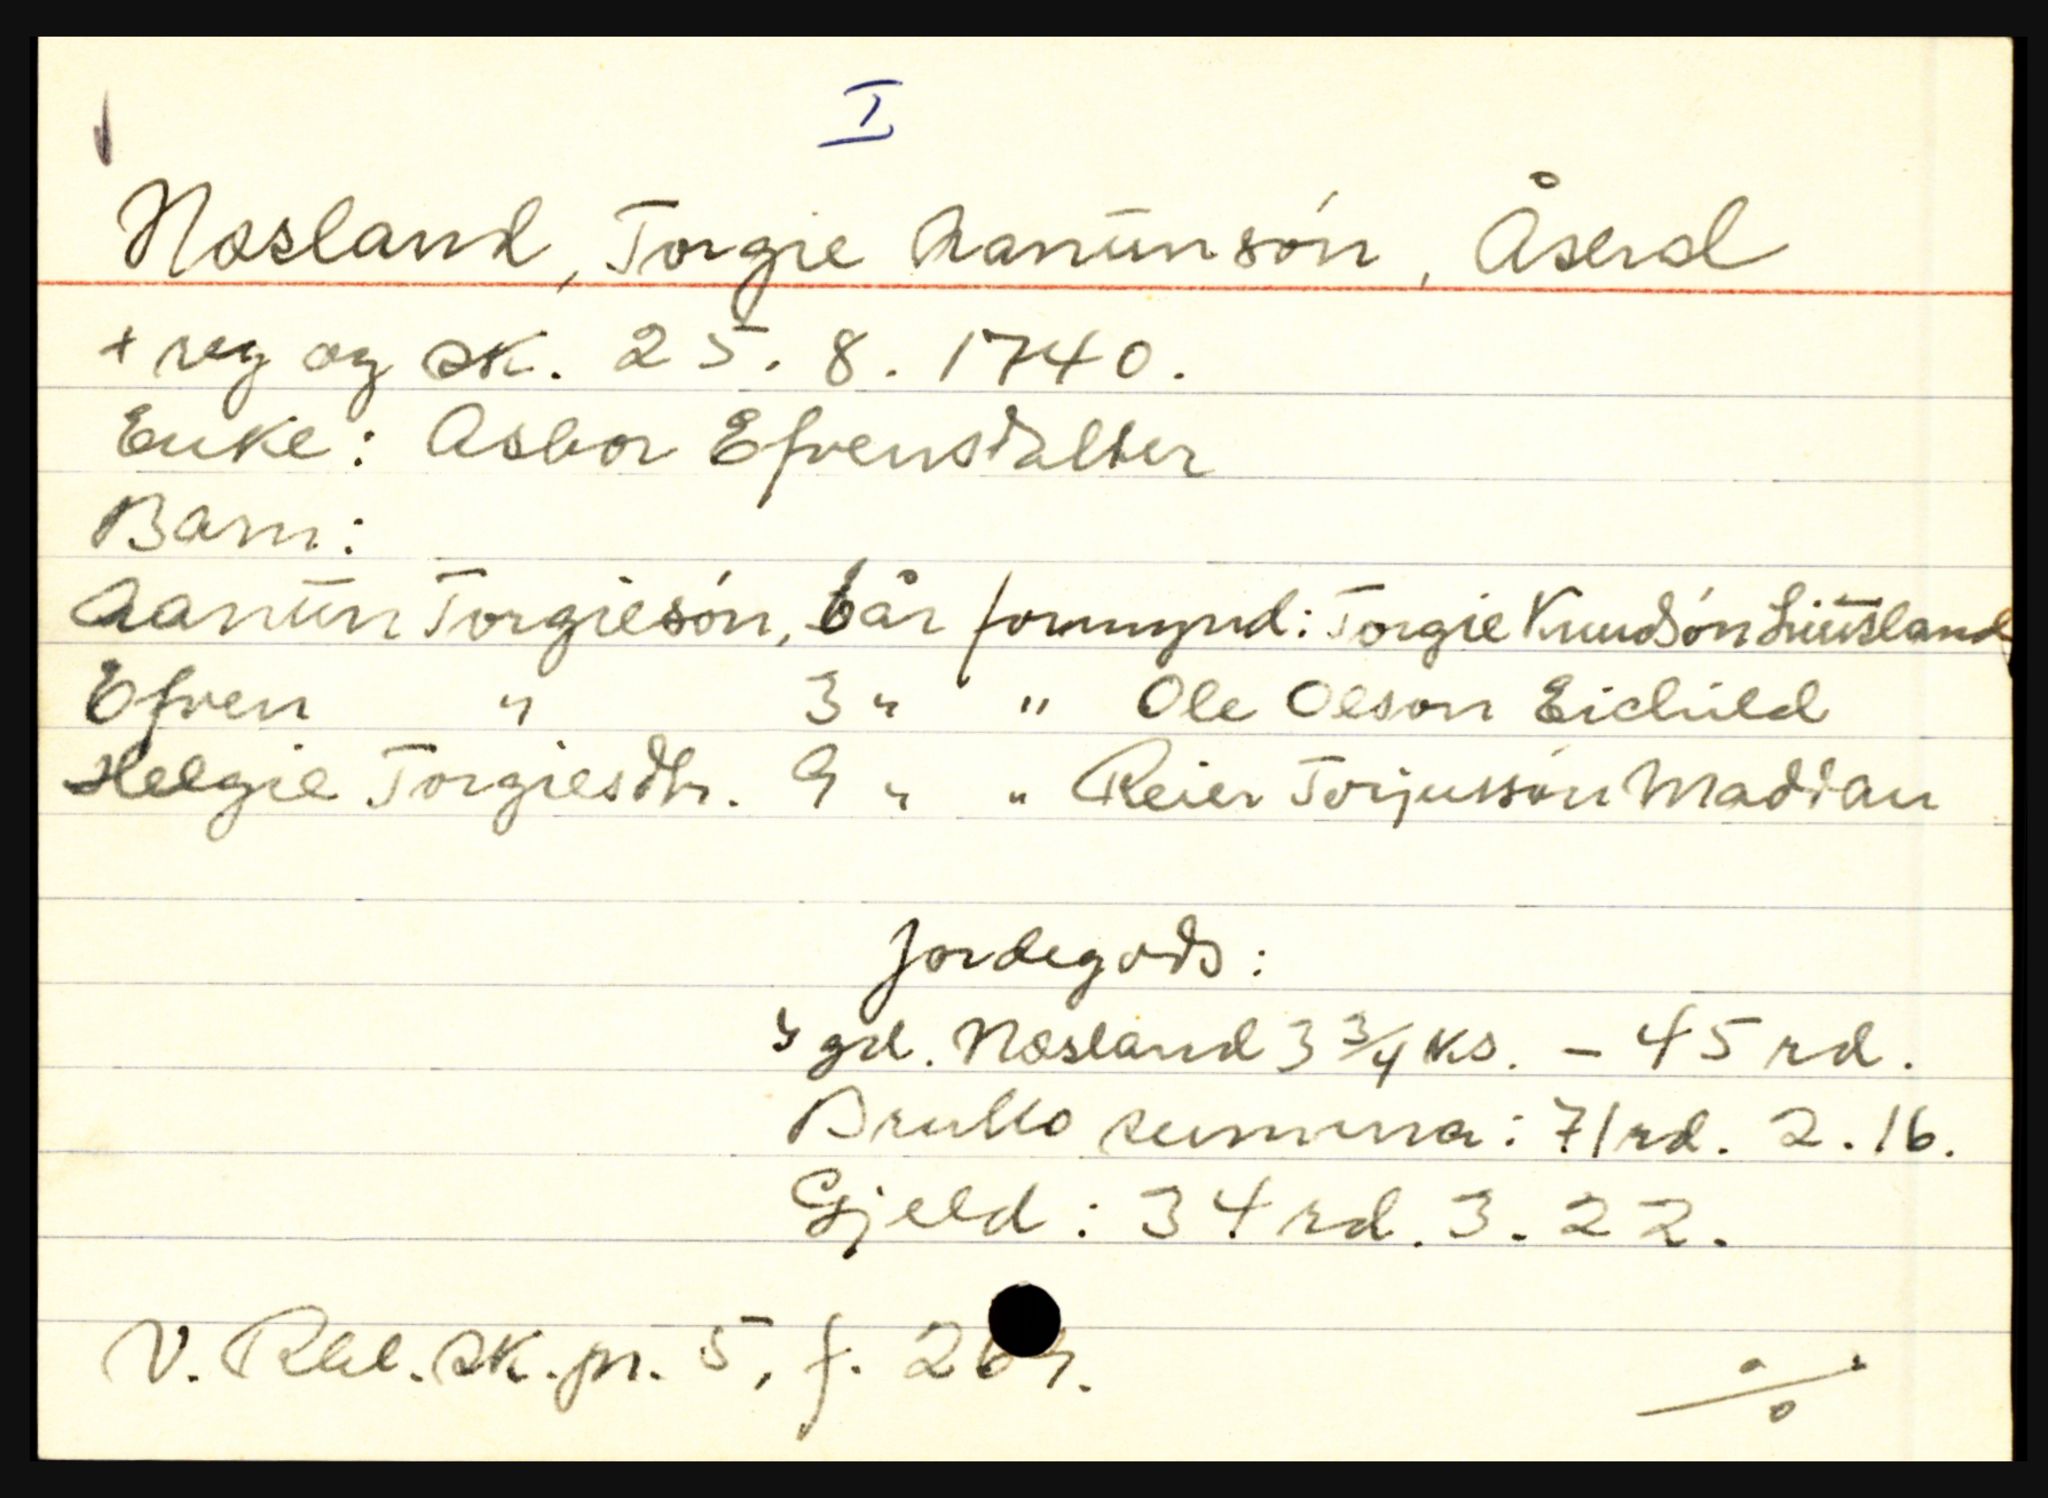 I
Næsland, Torgie Aanunsón, Åseral
+ reg og sk. 25. 8. 1740.
Enke: Asbor Efrensdatter
Barn:
Aanun Torgiesón, 6 år formynd: Torgie Knudsón Liusland
Efren " 3 " " Ole Olson Eichild
Helgie Torgiesdtr. 9 " " Reier Torjussón Madian
Jordegods:
gd. Næsland 3 3/4 ks. – 45 rd.
Brutto summa: 71 rd. 2. 16.
Gjeld: 34 rd. 3. 22.
V. Rbl. sk. pr. 5, f.